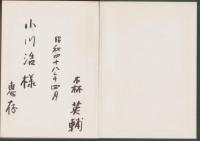 小川浩様
恵存
昭和四十八年四月
英輔